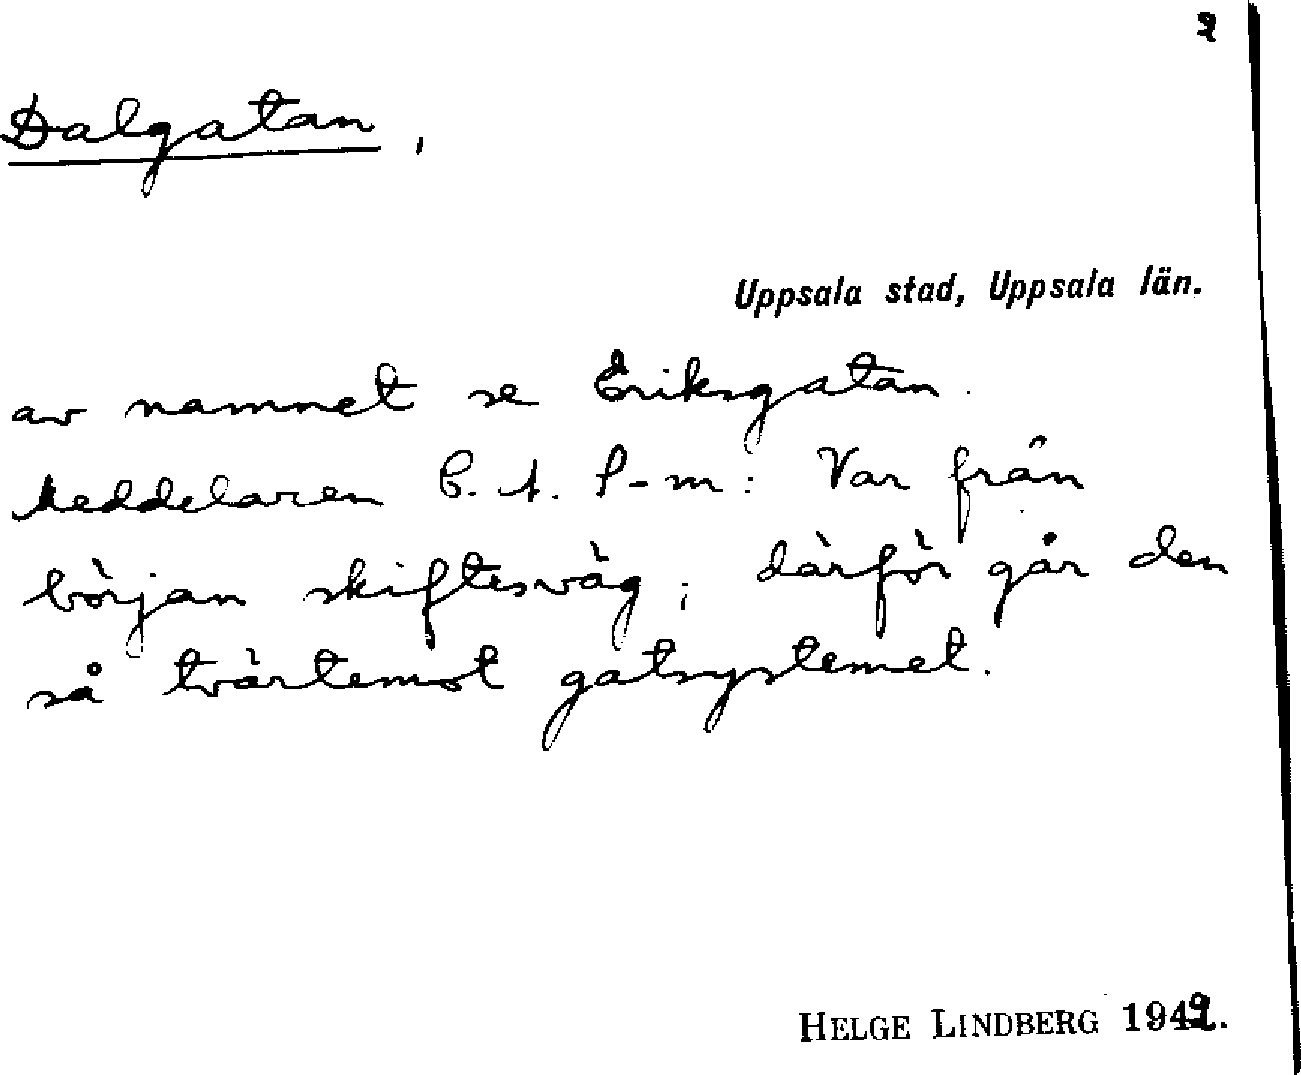 2
Dalgatan,
Uppsala stad, Uppsala län.
av namnet se Eriksgatan.
Meddelaren C. A. P-m: Var från
början skiftesväg; därför går den
så tvärtemot gatsystemet.
HELGE LINDBERG 1942.